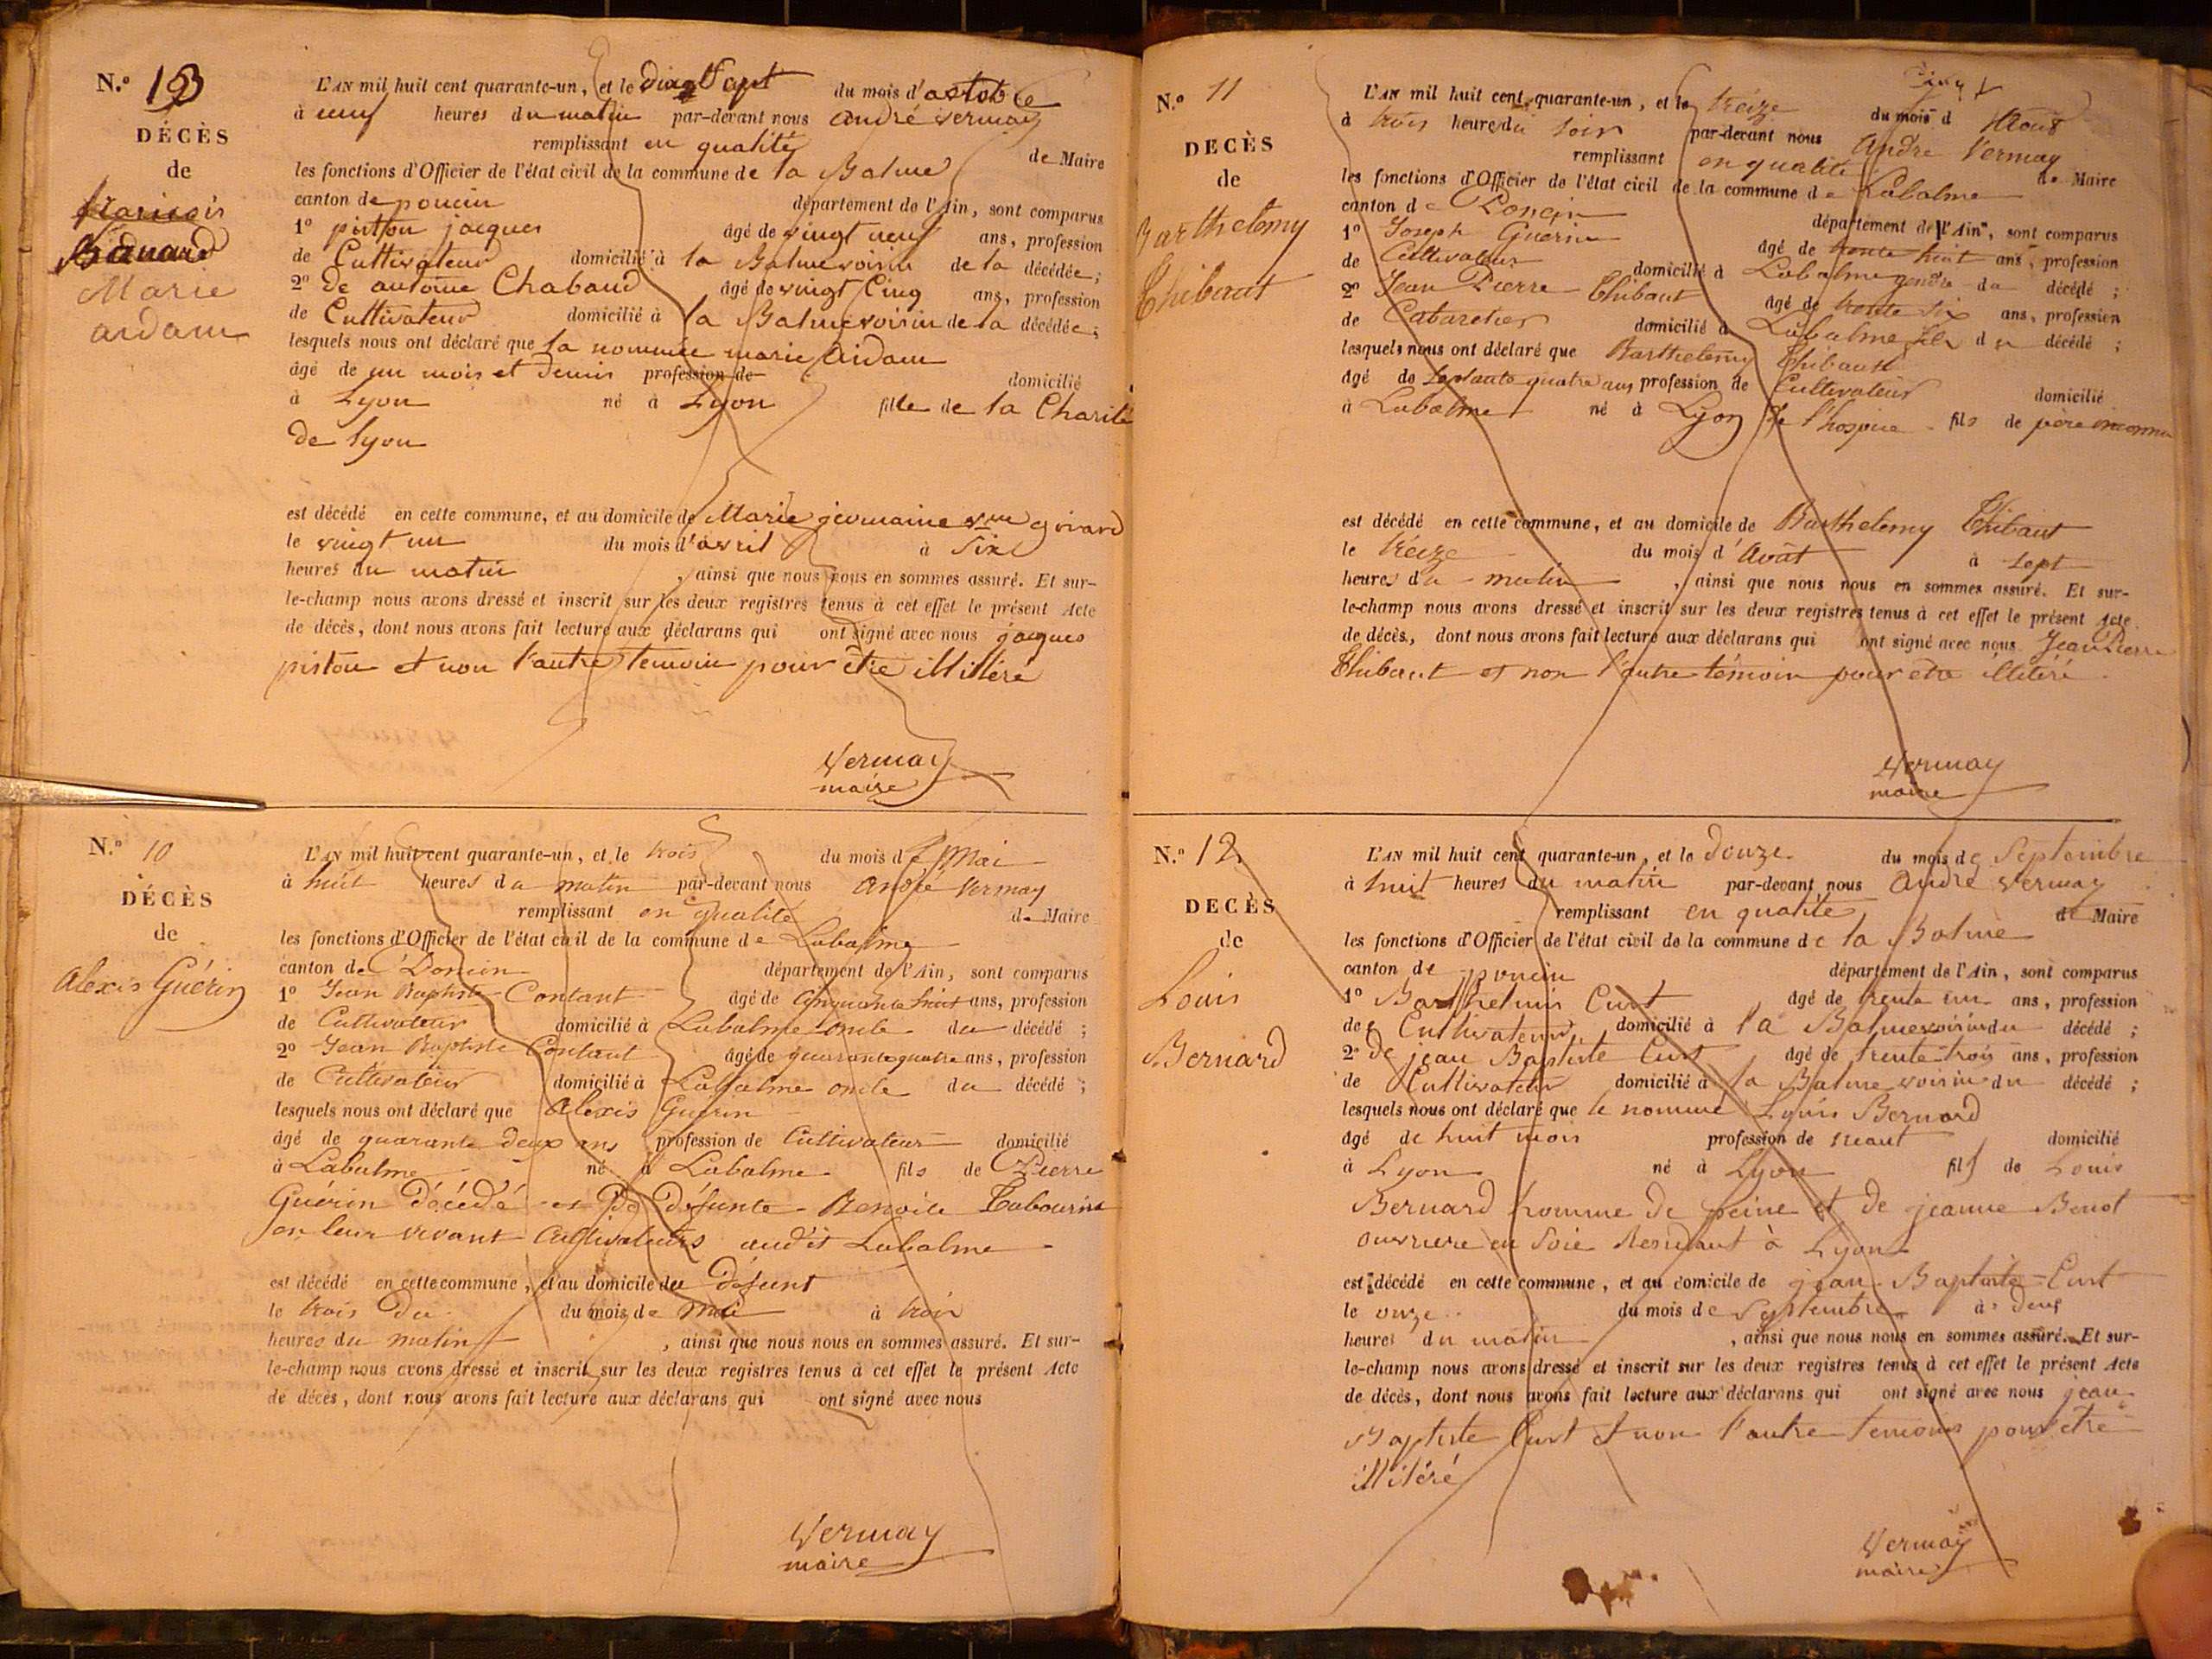 N.º 13
DÉCÈS
de
Marie
aidam
L'AN mil huit cent quarante-un, et le Sept du mois d'octobre
à neuf heures du matin par-devant nous andré vermay
remplissant en qualité de Maire
les fonctions d'Officier de l'état civil de la commune de la Balme
canton de poncin département de l'Ain, sont comparus
1º pistton jacques âgé de vingt neuf ans, profession
de Cultivateur domicilié à la Balme voisin de la décédée;
2º de antoine Chabaud âgé de vingt Cinq ans, profession
de Cultivateur domicilié à la Balme voisin de la décédée;
lesquels nous ont déclaré que la nommée marie Aidam
âgé de un mois et demis profession de domicilié
à Lyon né à Lyon fille de la Charité
de lyon
est décédé en cette commune, et au domicile de Marie jermaine vve girard
le vingt un du mois d'avril à Six
heures du matin, ainsi que nous nous en sommes assuré. Et sur-
le-champ nous avons dressé et inscrit sur les deux registres tenus à cet effet le présent Acte
de décès, dont nous avons fait lecture aux déclarans qui ont signé avec nous jacques
piston et non l'autre temoin pour être illitéré
Vermay
maire
N.º 10
DÉCÈS
de
Alexis Guérin
L'AN mil huit cent quarante-un, et le trois du mois de Mai
à huit heures du matin par-devant nous André Vermay
remplissant en qualité de Maire
les fonctions d'Officier de l'état civil de la commune de Labalme
canton de Poncin département de l'Ain, sont comparus
1º Jean Baptiste Contant âgé de Cinquante huit ans, profession
de Cultivateur domicilié à Labalme oncle du décédé;
2º Jean Baptiste Contant âgé de quarante quatre ans, profession
de Cultivateur domicilié à Labalme oncle du décédé;
lesquels nous ont déclaré que Alexis Guérin
âgé de quarante deux ans profession de Cultivateur domicilié
à Labalme né à Labalme fils de Pierre
Guérin Décédé et De Défunte Benoite Tabourin
en leur vivant Cultivateurs audit Labalme
est décédé en cette commune, et au domicile du Défunt
le trois du du mois de Mai à trois
heures du matin, ainsi que nous nous en sommes assuré. Et sur-
le-champ nous avons dressé et inscrit sur les deux registres tenus à cet effet le présent Acte
de décès, dont nous avons fait lecture aux déclarans qui ont signé avec nous
Vermay
maire
N.º 11
DÉCÈS
de
Barthelemy
Thibaut
L'AN mil huit cent quarante-un, et le treize du mois d Aout
à trois heures du soir par-devant nous André Vermay
remplissant en qualité de Maire
les fonctions d'Officier de l'état civil de la commune de Labalme
canton de Poncin département de l'Ain, sont comparus
1º Joseph Guerin âgé de trente huit ans, profession
de Cultivateur domicilié à Labalme gendre du décédé;
2º Jean Pierre Thibaut âgé de trente six ans, profession
de Cabaretier domicilié à Labalme fils du décédé;
lesquels nous ont déclaré que Barthelemy Thibaut
âgé de septante quatre ans profession de Cultivateur domicilié
à Labalme né à Lyon de l'hospice fils de père inconnu
est décédé en cette commune, et au domicile de Barthelemy Thibaut
le treize du mois d'Août à sept
heures du matin, ainsi que nous nous en sommes assuré. Et sur-
le-champ nous avons dressé et inscrit sur les deux registres tenus à cet effet le présent Acte
de décès, dont nous avons fait lecture aux déclarans qui ont signé avec nous Jean Pierre
Thibaut et non l'autre témoin pour être illitéré
Vermay
maire
N.º 12
DÉCÈS
de
Louis
Bernard
L'AN mil huit cent quarante-un, et le douze du mois de Septembre
à huit heures du matin par-devant nous André vermay
remplissant en qualité de Maire
les fonctions d'Officier de l'état civil de la commune de la Balme
canton de poncin département de l'Ain, sont comparus
1º Barthelmis Curt âgé de trente un ans, profession
de Cultivateur domicilié à la Balme voisin du décédé;
2º de jean Baptiste Curt âgé de trente trois ans, profession
de Cultivateur domicilié à la Balme voisin du décédé;
lesquels nous ont déclaré que le nommé Louis Bernard
âgé de huit mois profession de neant domicilié
à Lyon né à Lyon fils de Louis
Bernard homme de peine et de jeanne Benot
ouvriere en Soie Residant à Lyon
est décédé en cette commune, et au domicile de jean Baptiste Curt
le onze du mois de Septembre à deux
heures du matin, ainsi que nous nous en sommes assuré. Et sur-
le-champ nous avons dressé et inscrit sur les deux registres tenus à cet effet le présent Acte
de décès, dont nous avons fait lecture aux déclarans qui ont signé avec nous jean
Baptiste Curt et non l'autre temoins pour être
illitéré
Vermay
maire